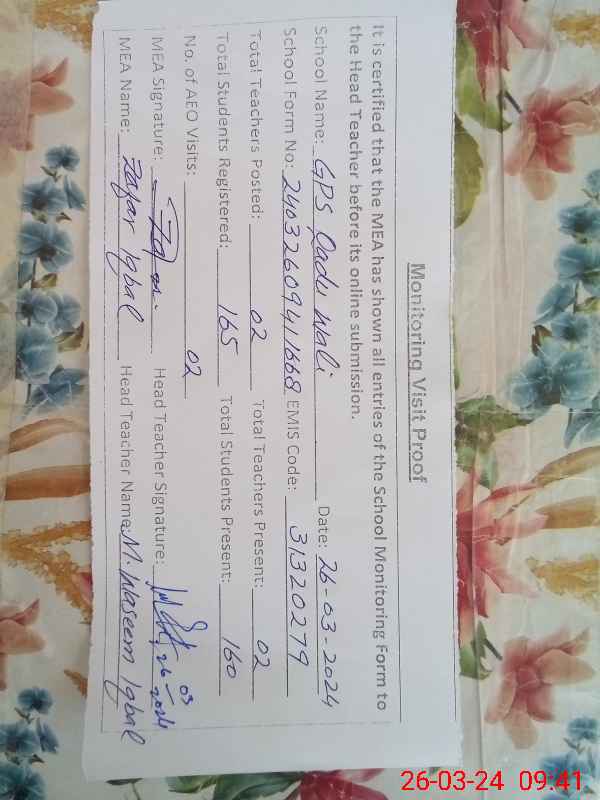 Monitoring Visit Proof
It is certified that the MEA has shown all entries of the School Monitoring Form to
the Head Teacher before its online submission.
School Name: GPS Qadu Wali Date: 26-03-2024
School Form No: 24032609411668 EMIS Code: 31320279
Total Teachers Posted: 02 Total Teachers Present: 02
Total Students Registered: 165 Total Students Present: 160
No. of AEO Visits: 02
MEA Signature: Head Teacher Signature:
MEA Name: Zafar Iqbal Head Teacher Name: M. Waseem Iqbal
26-03-24 09:41